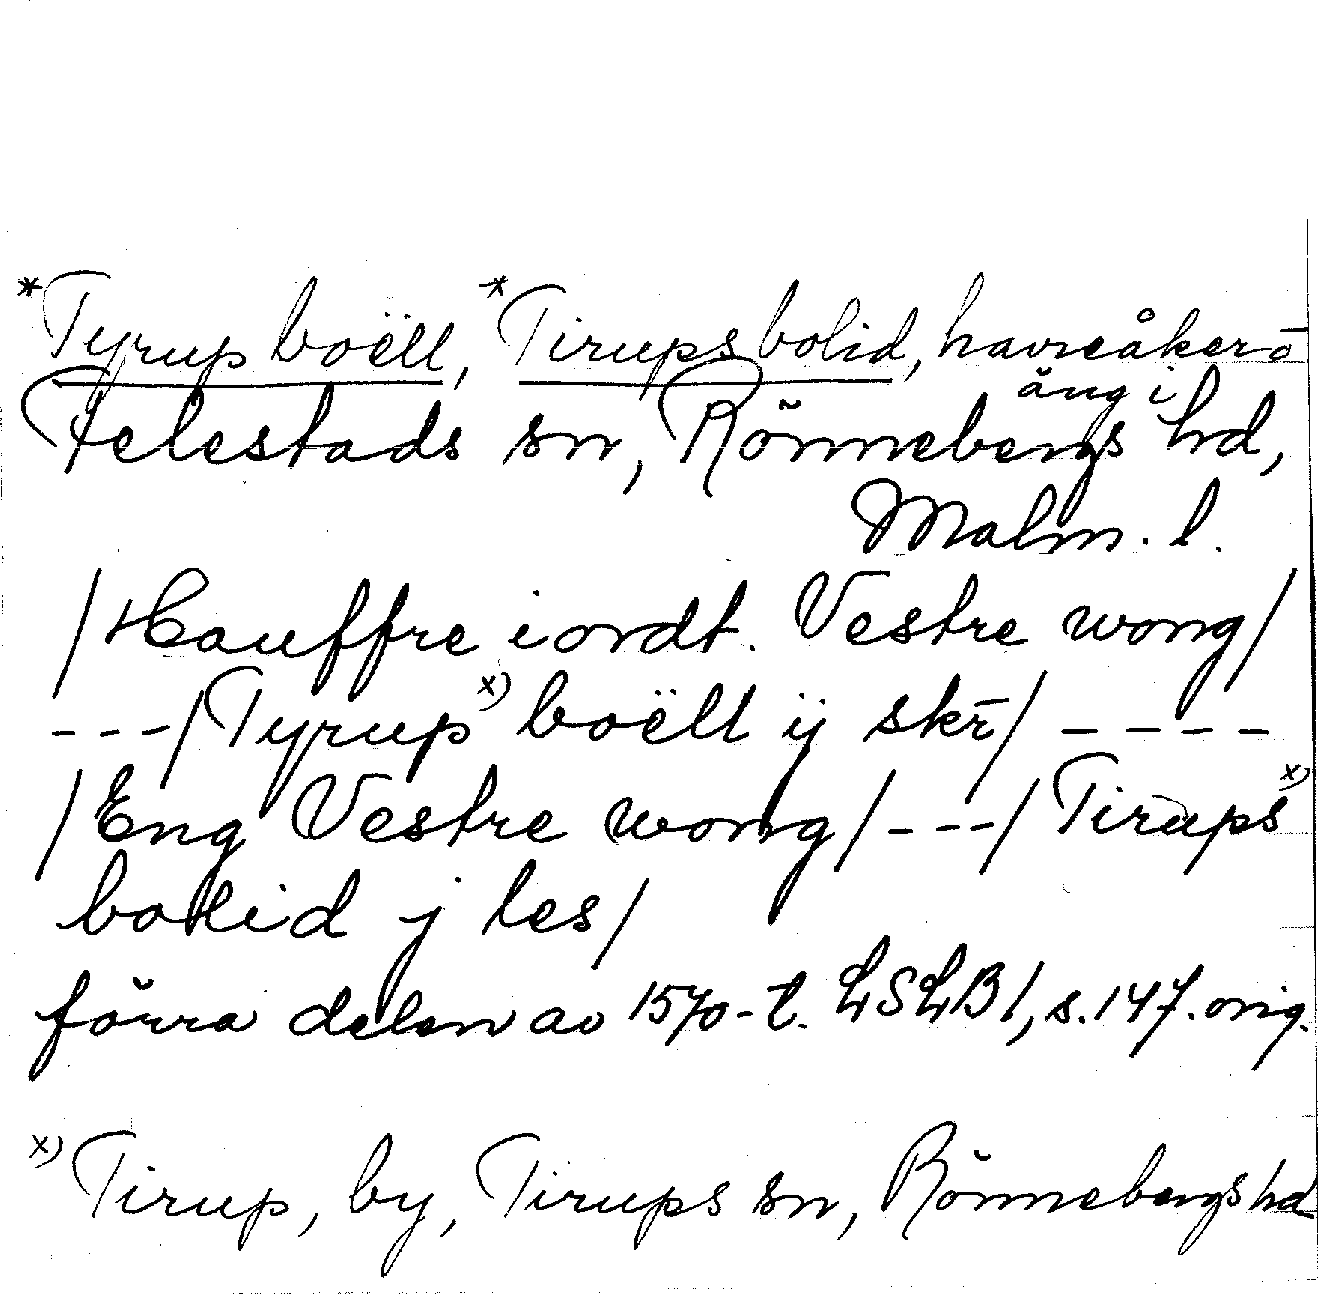 *Tyrup boëll, *Tirups bolid, havreåker o
äng i
Felestads sn, Rönnebergs hd,
Malm. l.
/Hauffre iordt. Vestre wong/
---/Tyrup x) boëll ij skr̄/ ----
/Eng Vestre wong/---/Tirups x)
bolid j les/
förra delen av 1570-t. LSLB1, s. 147. orig.
x) Tirup, by, Tirups sn, Rönnebergs hd